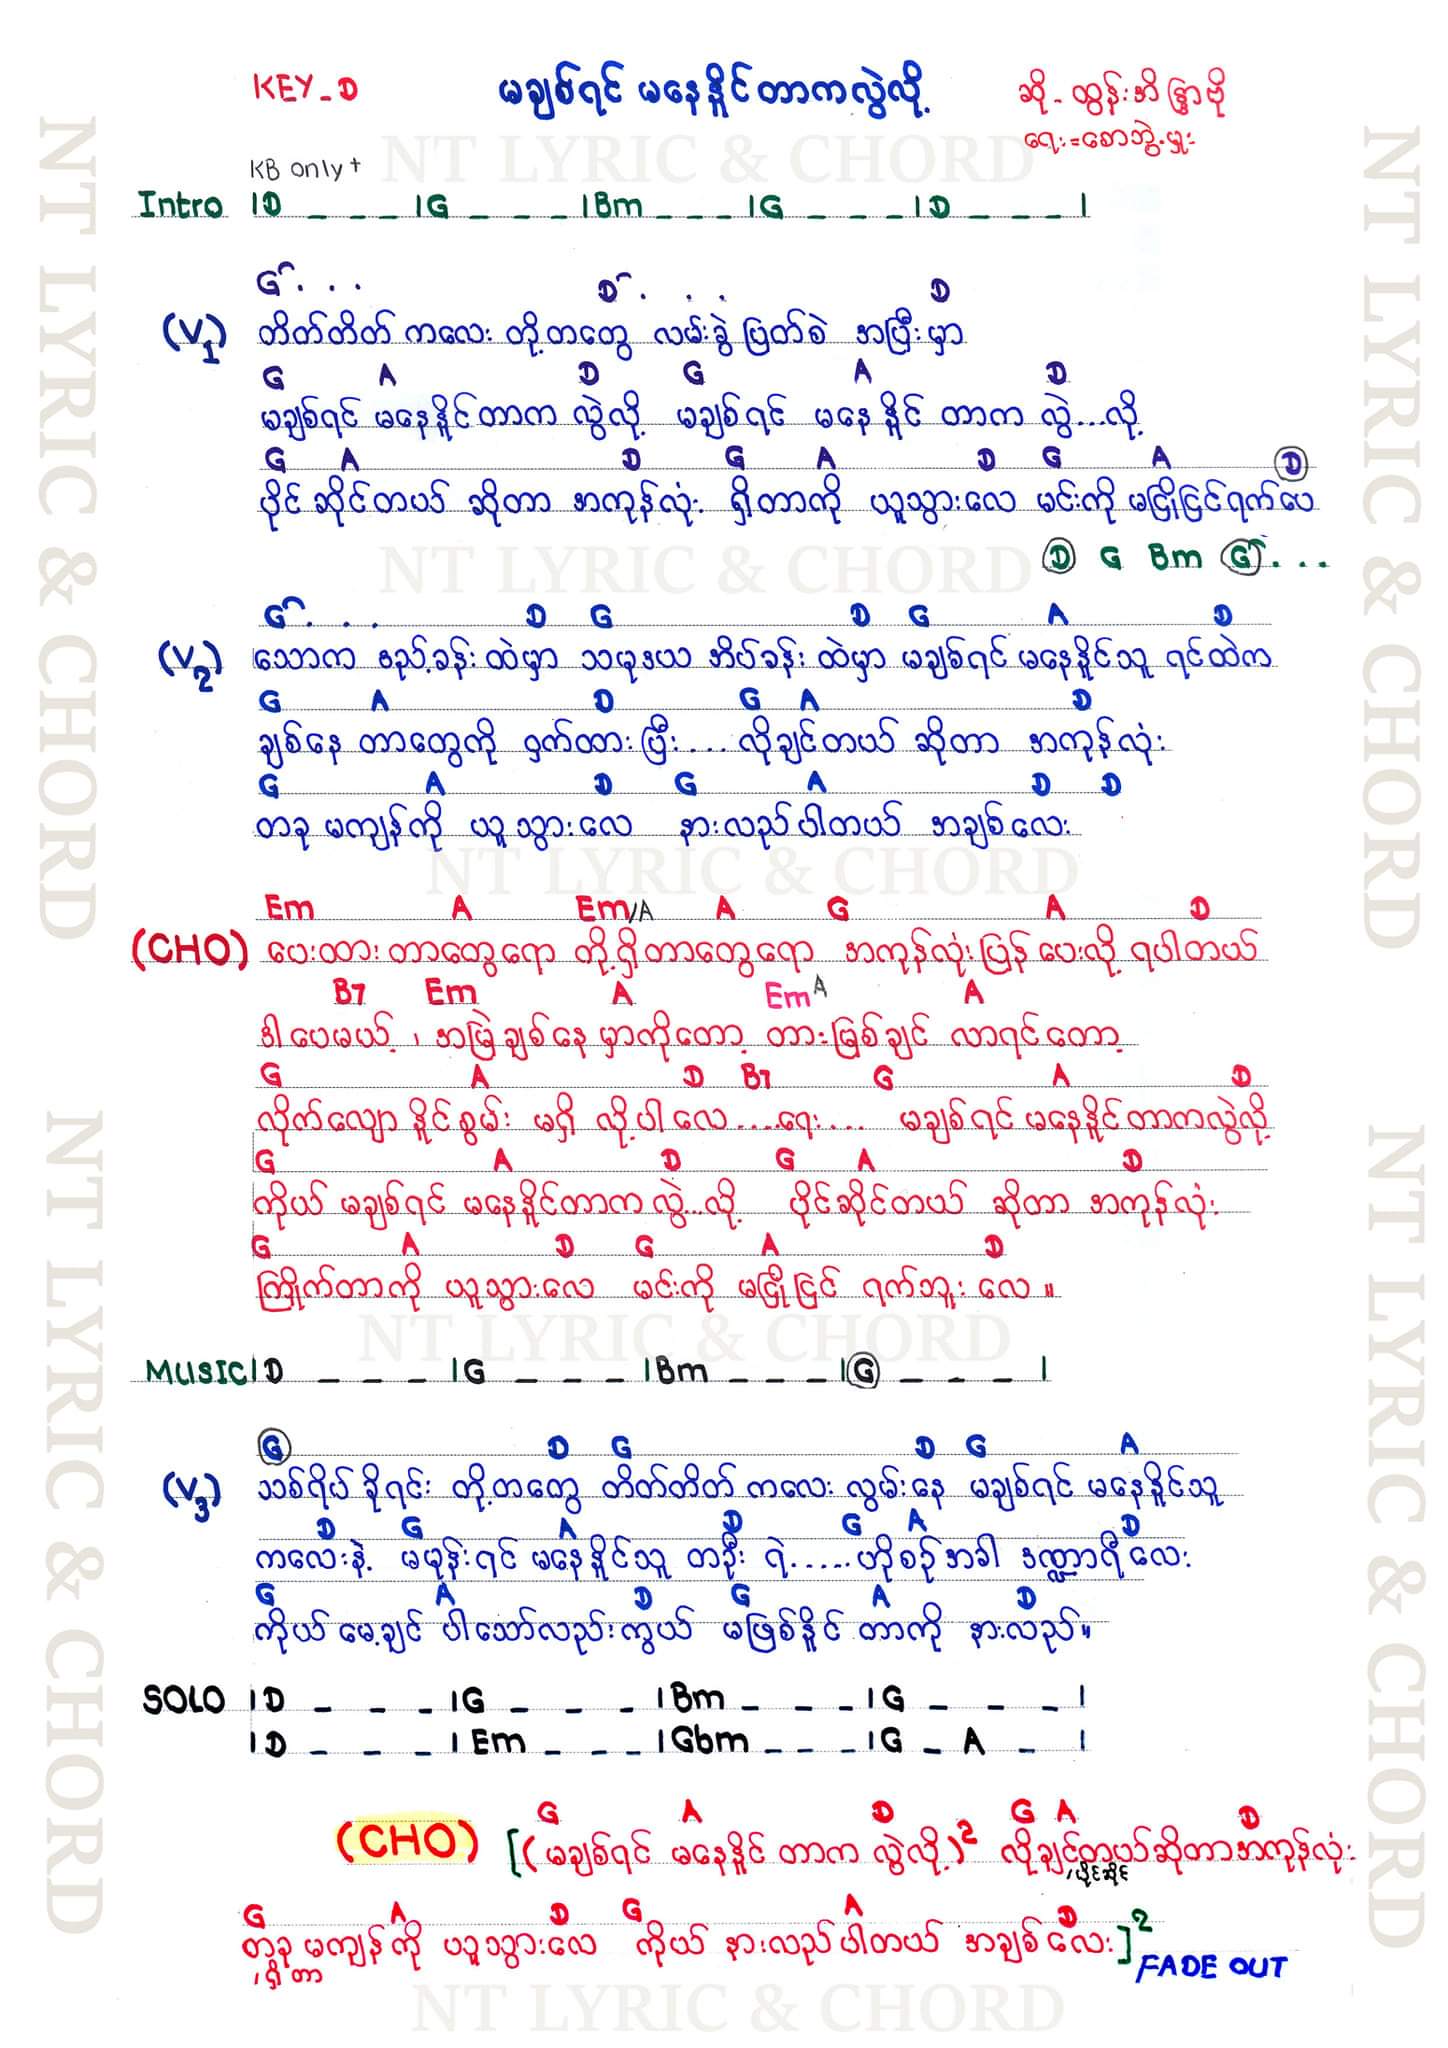 KEY - D
မချစ်ရင် မနေနိူင်တာကလွဲလို့
ဆို - ထွန်းအိန္ဒြာဗို
ရေး = စောဘွဲ့မှူး
KB only +
Intro |D _ _ _ |G _ _ _ |Bm _ _ _ |G _ _ _ |D _ _ _ |
G . . . D . . . D
(V1) တိတ်တိတ် ကလေး တို့တတွေ လမ်းခွဲ ပြတ်စဲ အပြီးမှာ
G A D G A D
မချစ်ရင် မနေနိူင်တာက လွဲလို့ မချစ်ရင် မနေနိူင် တာက လွဲ...လို့
G A D G A D G A D
ပိုင်ဆိုင်တယ် ဆိုတာ အကုန်လုံး ရှိတာကို ယူသွားလေ မင်းကို မငြိုငြင်ရက်ပေ
D G Bm G . . .
G . . . D G D G A D
(V2) သောက ဧည့်ခန်းထဲမှာ သမုဒယ အိပ်ခန်းထဲမှာ မချစ်ရင် မနေနိူင်သူ ရင်ထဲက
G A D G A D
ချစ်နေ တာတွေကို ဝှက်ထားပြီး.... လိုချင်တယ် ဆိုတာ အကုန်လုံး
G A D G A D D
တခု မကျန်ကို ယူသွားလေ နားလည်ပါတယ် အချစ်လေး
Em A Em/A A G A D
(CHO) ပေးထား တာတွေရော တို့ရှိတာတွေရော အကုန်လုံး ပြန်ပေးလို့ ရပါတယ်
B7 Em A Em A A
ဒါပေမယ့် ၊ အမြဲချစ်နေမှာကိုတော့ တားမြစ်ချင် လာရင်တော့
G A D B7 G A D
လိုက်လျော နိူင်စွမ်း မရှိ လို့ပါလေ.....ရေး.... မချစ်ရင် မနေနိူင်တာကလွဲလို့
G A D G A D
ကိုယ် မချစ်ရင် မနေနိူင်တာက လွဲ...လို့ ပိုင်ဆိုင်တယ် ဆိုတာ အကုန်လုံး
G A D G A D
ကြိုက်တာကို ယူသွားလေ မင်းကို မငြိုငြင် ရက်ဘူး လေ ။
MUSIC |D _ _ _ |G _ _ _ |Bm _ _ _ |G _ _ _ |
G D G D G A
(V3) သစ်ရိပ် ခိုရင်း တို့တတွေ တိတ်တိတ် ကလေး လွမ်းနေ မချစ်ရင် မနေနိူင်သူ
D G A D G A D
ကလေးနဲ့ မမုန်းရင် မနေနိူင်သူ တဦး ရဲ့..... ဟိုစဉ်အခါ ဒဏ္ဏာရီလေး
G A D G A D
ကိုယ် မေ့ချင် ပါသော်လည်းကွယ် မဖြစ်နိူင် တာကို နားလည်။
SOLO |D _ _ _ |G _ _ _ |Bm _ _ _ |G _ _ _ |
|D _ _ _ |Em _ _ _ |Gbm _ _ _ |G _ A _ |
G A D G A D
(CHO) [(မချစ်ရင် မနေနိူင် တာက လွဲလို့)2 လိုချင်တယ်ဆိုတာအကုန်လုံး
/ပိုင်ဆိုင်
G A D G A D
တခု မကျန် ကို ယူသွားလေ ကိုယ် နားလည်ပါတယ် အချစ်လေး]2
/ရှိတာ
FADE OUT
NT LYRIC & CHORD
NT LYRIC & CHORD
NT LYRIC & CHORD
NT LYRIC & CHORD
NT LYRIC & CHORD
NT LYRIC & CHORD
NT LYRIC & CHORD
NT LYRIC & CHORD
NT LYRIC & CHORD